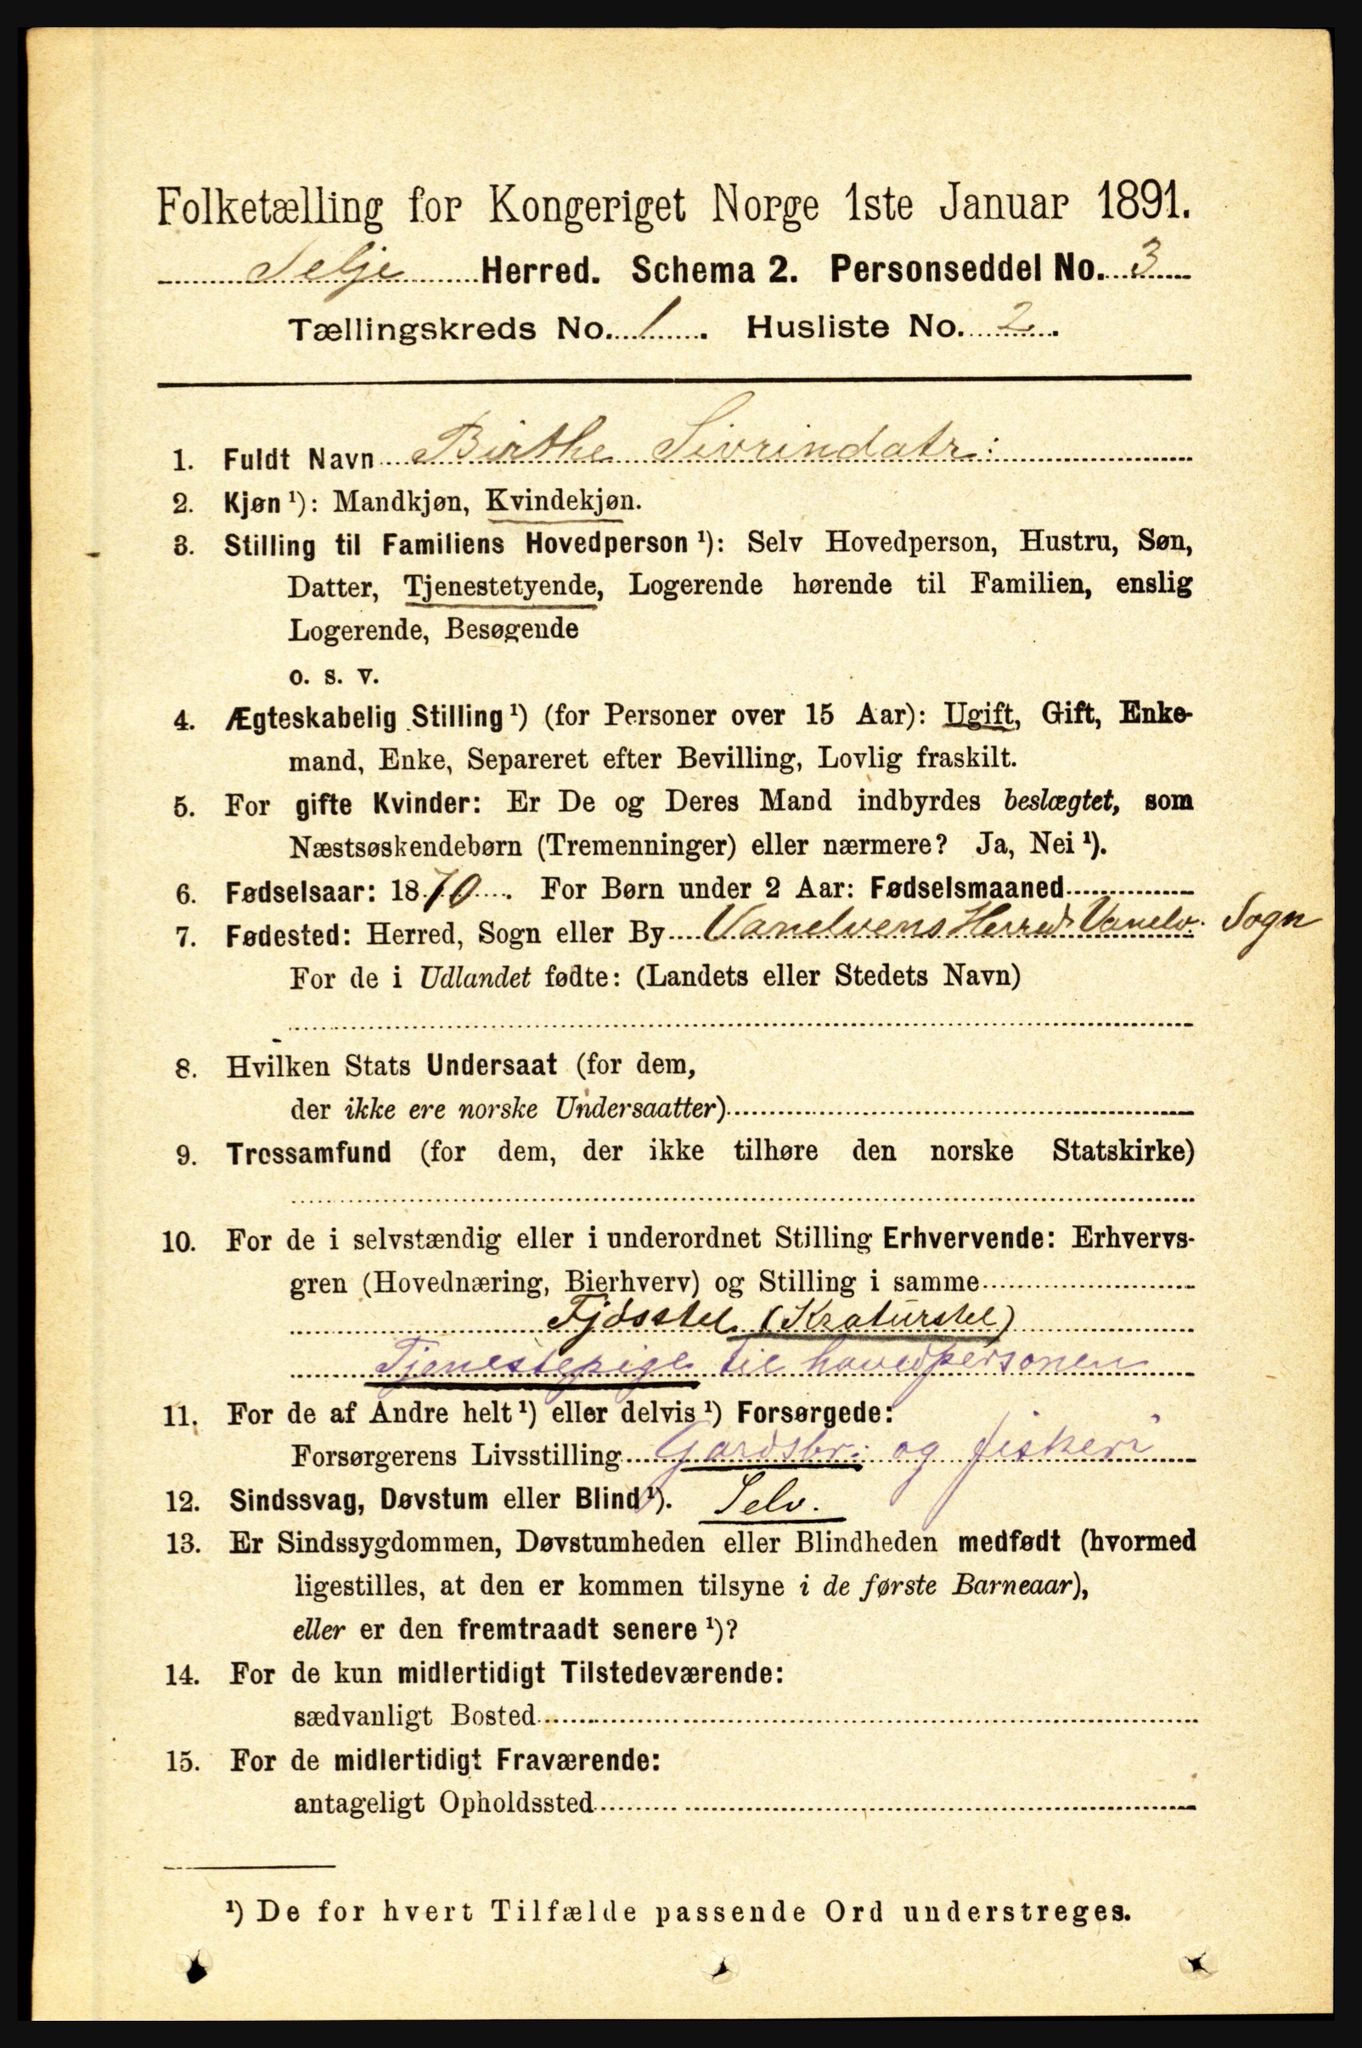 Folketælling for Kongeriget Norge 1ste Januar 1891.
Selje Herred. Schema 2. Personseddel No. 3
Tællingskreds No. 1. Husliste No. 2.
1. Fuldt Navn Birthe Sivrindatr:
2. Kjøn ¹): Mandkjøn, Kvindekjøn.
3. Stilling til Familiens Hovedperson ¹): Selv Hovedperson, Hustru, Søn,
Datter, Tjenestetyende, Logerende hørende til Familien, enslig
Logerende, Besøgende
o. s. v.
4. Ægteskabelig Stilling ¹) (for Personer over 15 Aar): Ugift, Gift, Enke-
mand, Enke, Separeret efter Bevilling, Lovlig fraskilt.
5. For gifte Kvinder: Er De og Deres Mand indbyrdes beslægtet, som
Næstsøskendebørn (Tremenninger) eller nærmere? Ja, Nei ¹).
6. Fødselsaar: 1870. For Børn under 2 Aar: Fødselsmaaned
7. Fødested: Herred, Sogn eller By Vanelvens Herred Vanelv. Sogn
For de i Udlandet fødte: (Landets eller Stedets Navn)
8. Hvilken Stats Undersaat (for dem,
der ikke ere norske Undersaatter)
9. Trossamfund (for dem, der ikke tilhøre den norske Statskirke)
10. For de i selvstændig eller i underordnet Stilling Erhvervende: Erhvervs-
gren (Hovednæring, Bierhverv) og Stilling i samme
Fjósstel (Kraturstel)
Tjenestepige til hovedpersonen
11. For de af Andre helt ¹) eller delvis ¹) Forsørgede:
Forsørgerens Livsstilling Gardsbr: og fiskeri
12. Sindssvag, Døvstum eller Blind ¹). Selv.
13. Er Sindssygdommen, Døvstumheden eller Blindheden medfødt (hvormed
ligestilles, at den er kommen tilsyne i de første Barneaar),
eller er den fremtraadt senere ¹)?
14. For de kun midlertidigt Tilstedeværende:
sædvanligt Bosted
15. For de midlertidigt Fraværende:
antageligt Opholdssted
¹) De for hvert Tilfælde passende Ord understreges.